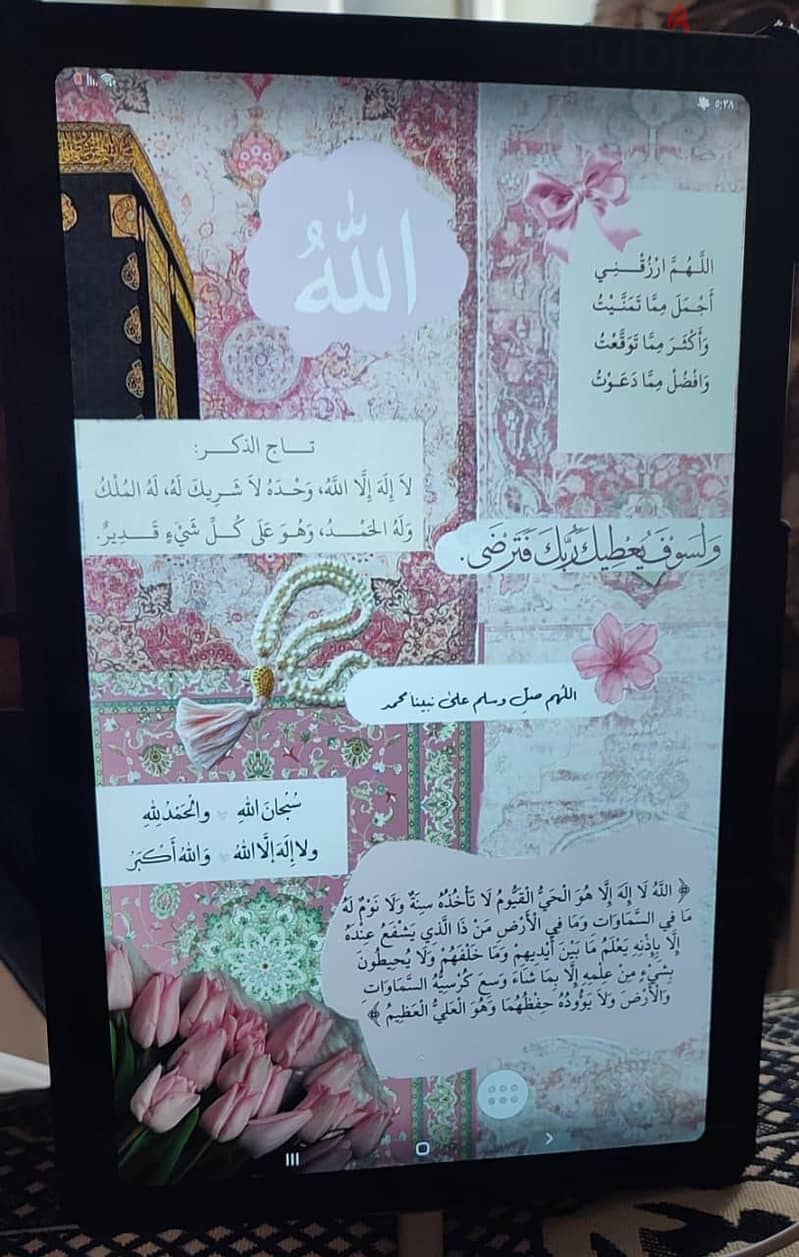 dubizzle
٥:٢٨
اللهُ
اللَّهُمَّ ارْزُقْنِي
أَجْمَلَ مِمَّا تَمَنَّيْتُ
وَأَكْثَرَ مِمَّا تَوَقَّعْتُ
وَافْضُلْ مِمَّا دَعَوْتُ
تاج الذكر:
لاَ إِلَهَ إِلَّا اللَّهُ، وَحْدَهُ لاَ شَرِيكَ لَهُ، لَهُ المُلْكُ
وَلَهُ الحَمْدُ، وَهُوَ عَلَى كُلِّ شَيْءٍ قَدِيرٌ.
وَلَسَوْفَ يُعْطِيكَ رَبُّكَ فَتَرْضَى.
اللهم صلِ وسلم على نبينا محمد
سُبْحَانَ اللهِ والْحَمْدُ لِلهِ
ولا إِلَهَ إلَّا اللهُ وَاللهُ أَكْبَرُ
﴿ اللَّهُ لَا إِلَهَ إِلَّا هُوَ الْحَيُّ الْقَيُّومُ لَا تَأْخُذُهُ سِنَةٌ وَلَا نَوْمٌ لَهُ
مَا فِي السَّمَاوَاتِ وَمَا فِي الْأَرْضِ مَنْ ذَا الَّذِي يَشْفَعُ عِنْدَهُ
إِلَّا بِإِذْنِهِ يَعْلَمُ مَا بَيْنَ أَيْدِيهِمْ وَمَا خَلْفَهُمْ وَلَا يُحِيطُونَ
بِشَيْءٍ مِنْ عِلْمِهِ إِلَّا بِمَا شَاءَ وَسِعَ كُرْسِيُّهُ السَّمَاوَاتِ
وَالْأَرْضَ وَلَا يَؤُودُهُ حِفْظُهُمَا وَهُوَ الْعَلِيُّ الْعَظِيمُ ﴾